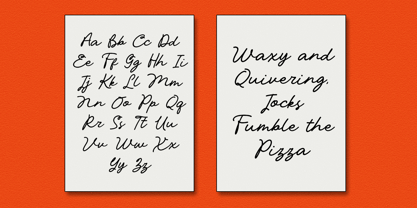 Aa Bb Cc Dd
Ee Ff Gg Hh Ii
Jj Kk Ll Mm
Nn Oo Pp Qq
Rr Ss Tt Uu
Vv Ww Xx
Yy Zz
Waxy and
Quivering,
Jocks
Fumble the
Pizza